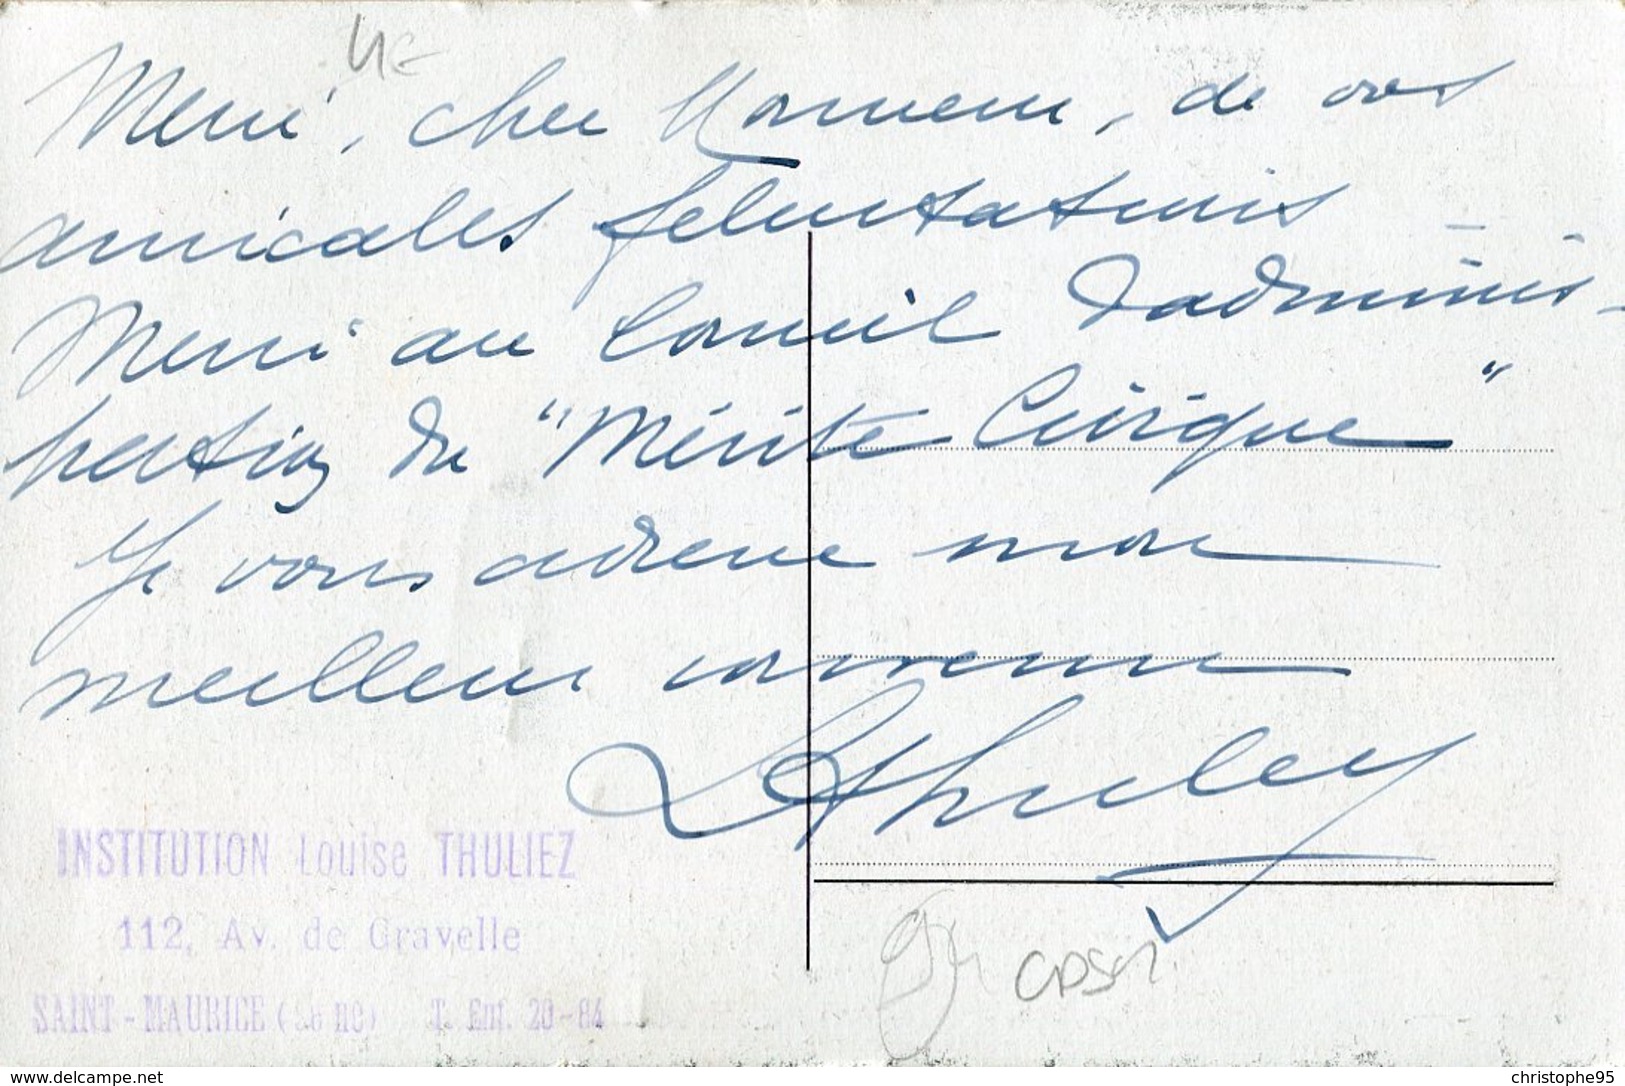 4€
Merci, cher Monsieur, de vos
amicales félicitations –
Merci au Conseil d'adminis-
tration du "Mérite Civique"
Je vous adresse mon
meilleur souvenir
LThuliez
INSTITUTION Louise THULIEZ
112, Av. de Gravelle
SAINT-MAURICE (Seine) T. Ent. 20-84
CPSM
www.delcampe.net
christophe95